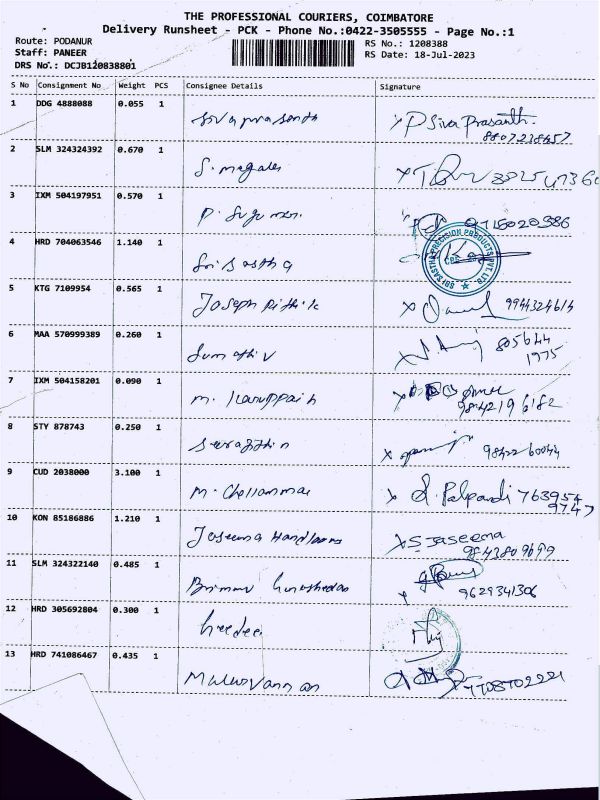 THE PROFESSIONAL COURIERS, COIMBATORE
Delivery Runsheet - PCK - Phone No.:0422-3505555 - Page No.:1
Route: PODANUR
Staff: PANEER
DRS No.: DCJB120838801
RS No.: 1208388
RS Date: 18-Jul-2023
S No Consignment No Weight PCS Consignee Details Signature
1 DDG 4888088 0.055 1 Sivaprasanth P Siva Prasanth
8807228457
2 SLM 324324392 0.670 1 S. magales
3 IXM 504197951 0.570 1 P. Sugumar 9715020386
4 HRD 704063546 1.140 1 Sri Sastha SRI SASTHA PRECISION PRODUCTS PVT LTD
5 KTG 7109954 0.565 1 Joseph Rithik 9944324614
6 MAA 570999389 0.260 1 Sumathi V 805644
1975
7 IXM 504158201 0.090 1 M. Karuppaih
9842196182
8 STY 878743 0.250 1 9842260044
9 CUD 2038000 3.100 1 M. Chellammal S. Palpandi 763954
9747
10 KON 85186886 1.210 1 Jaseema Handlooms S. Jaseema
9843809699
11 SLM 324322140 0.485 1 9629341306
12 HRD 305692804 0.300 1
13 HRD 741086467 0.435 1 7708702221